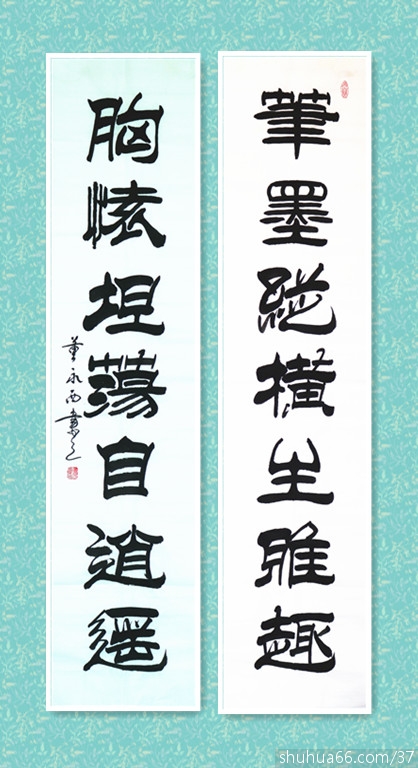 筆墨縱橫生雅趣
胸懷坦蕩自逍遙
董永西書之
shuhua66.com/37